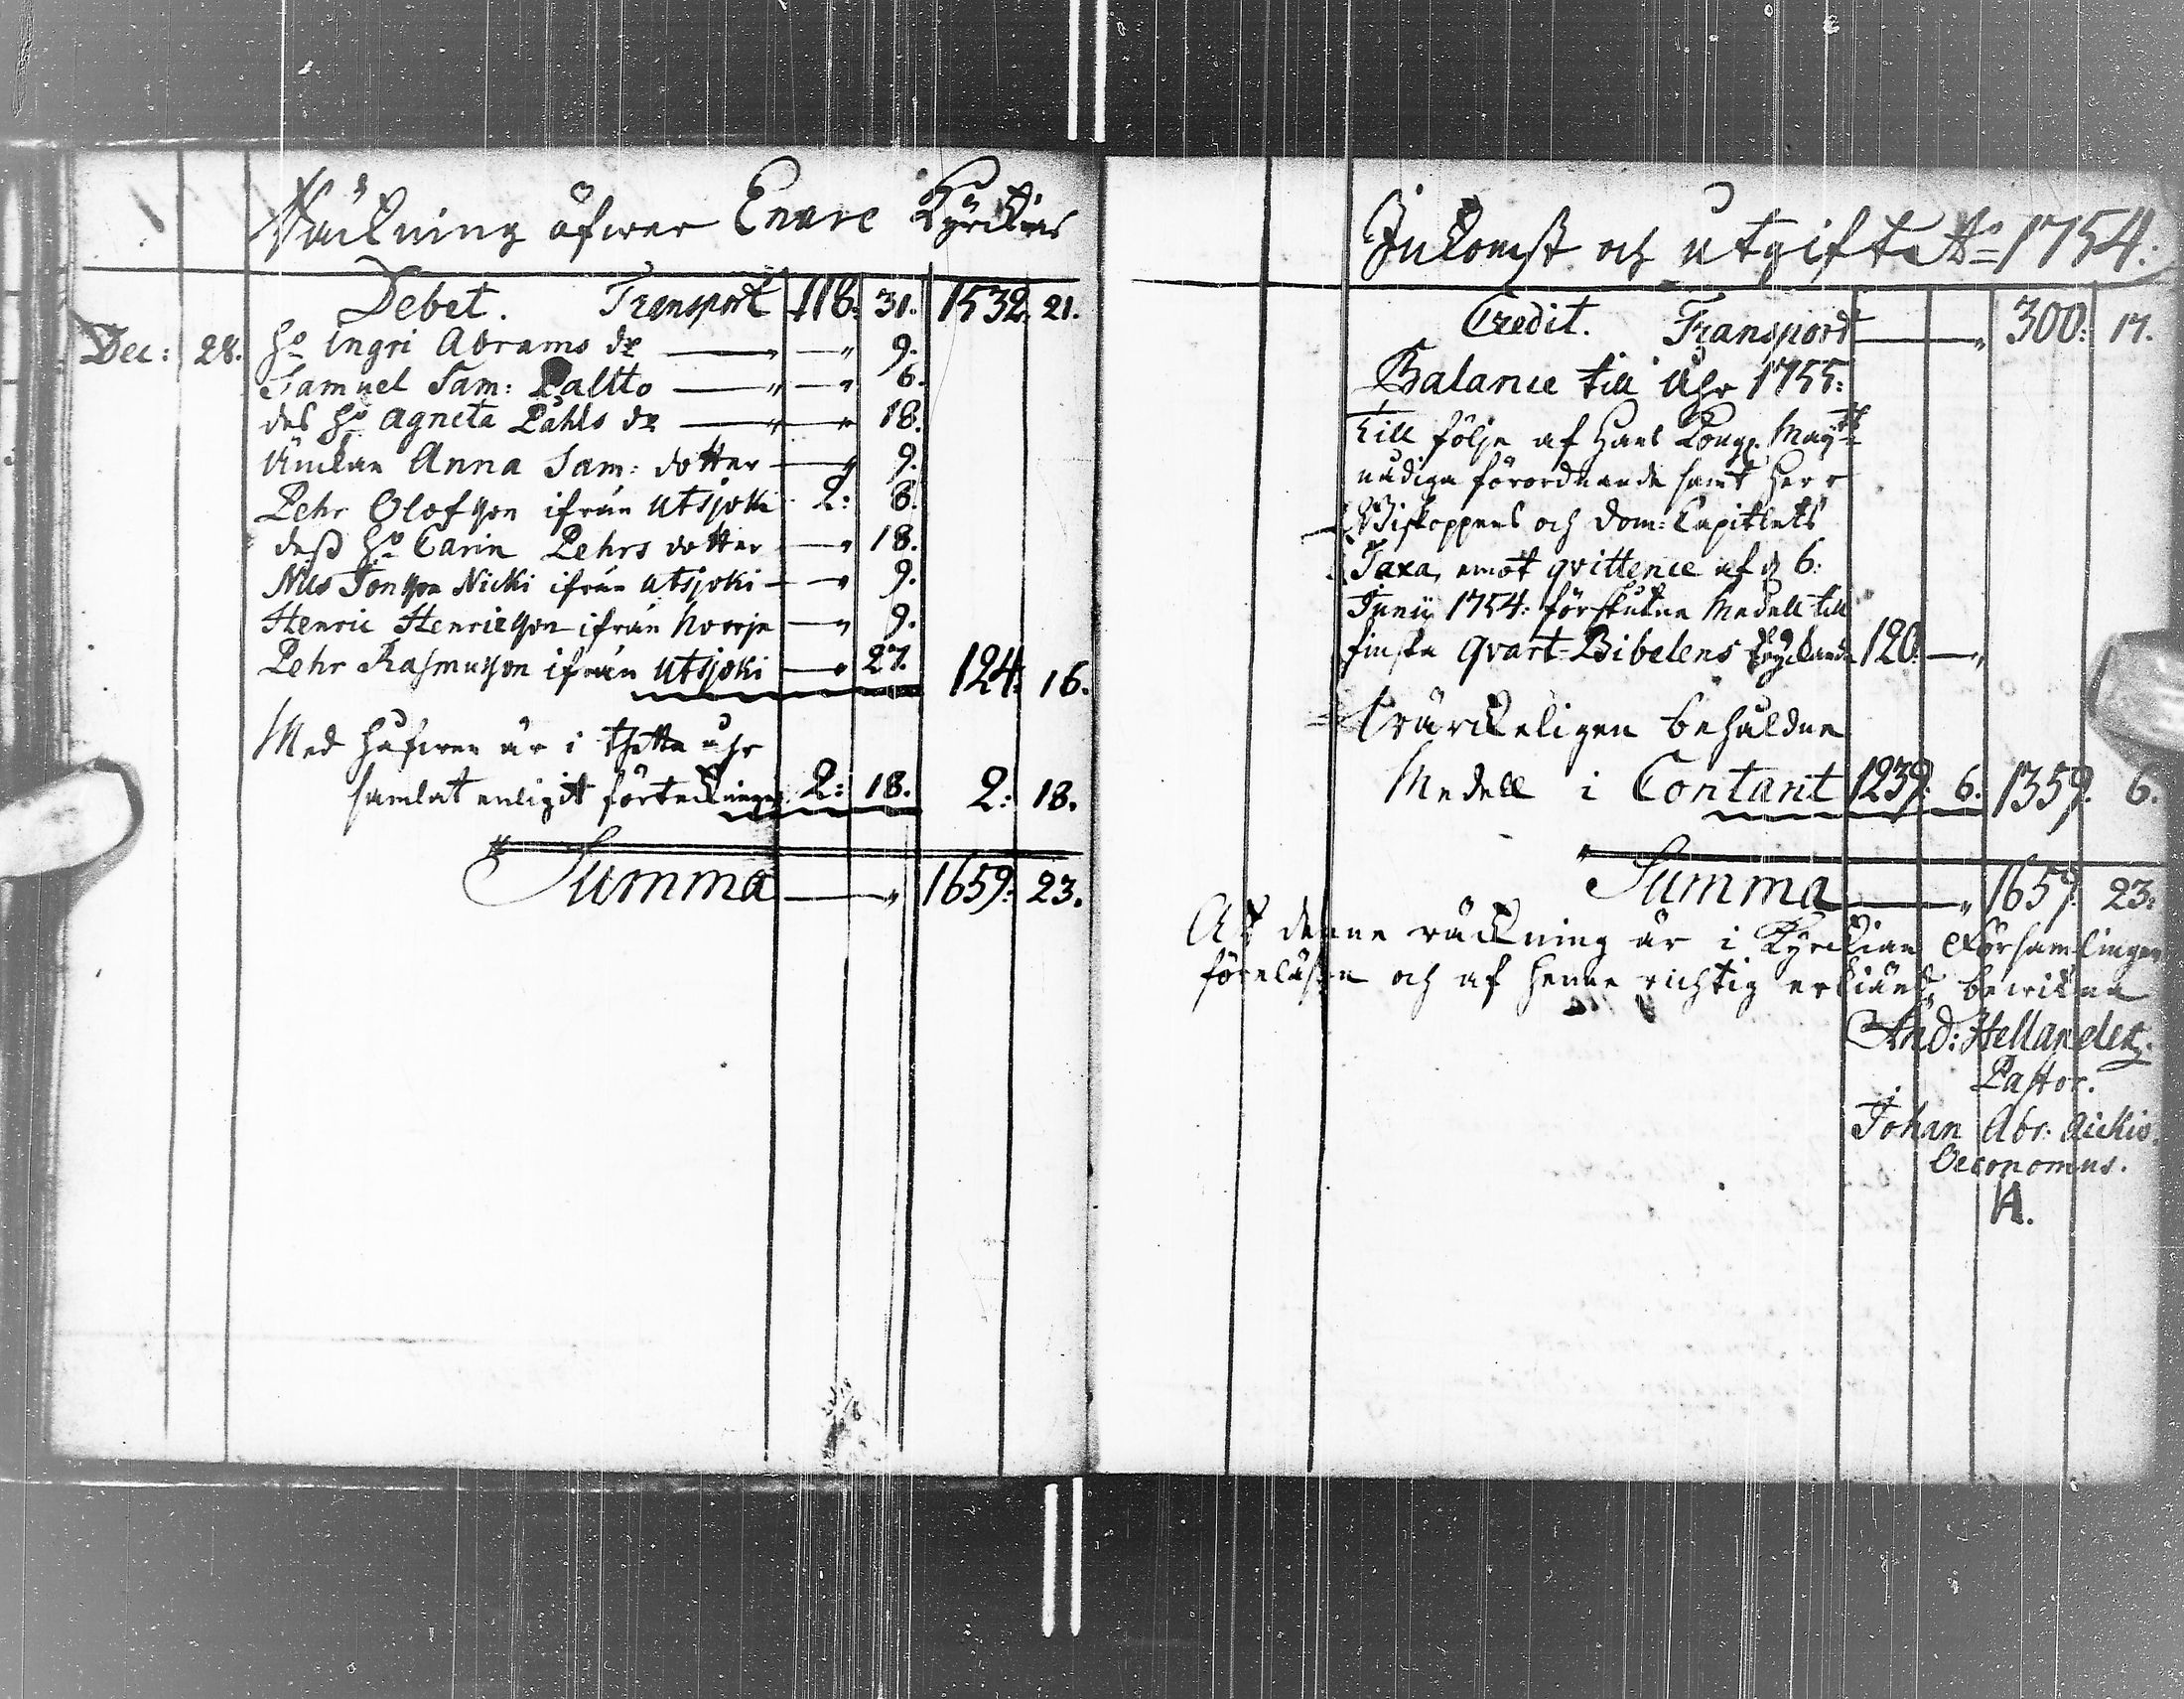 Räckning öfwer Enare Kyrckias
Debet. Transport 118: 31. 1532: 21.
Dec: 28. ho Ingri Abrams dr — 9.
Samuel Sam: Paltto — 6.
des ho Agneta Påhls dr — 18.
Änckan Anna Sam: dotter — 9.
Pehr Olofson ifrån Utsjoki 2: 8.
dess ho Carin Pehrs dotter — 18.
Nils Jonson Nicki ifrån Utsjoki — 9.
Henric Henricson ifrån Norrje — 9.
Pehr Rasmusson ifrån Utsjoki — 27. 124: 16.
Med håfwen är i thetta åhr
samlat enligit förteckningen 2: 18. 2: 18.
Summa — 1659: 23.
Inkomst och utgift Ao 1754:
Credit. Transport — 300: 17.
Balance till åhr 1755:
Till följe af Hans Kongl. Maytz
nådiga förordnande samt Herr
Biskoppens och Dom: Capitlets
Taxa, emot qvittence af d 6:
Junii 1754: förskutne Medell till
finska Qvart-Bibelens tryckande 120: —
Wärckeligen behåldne
Medell i Contant 1239: 6. 1359: 6.
Summa — 1659: 23.
At denne räckning är i Kyrckian Församlingen
föreläsen och af henne richtig erkiänd, bewittna
And: Hellander.
Pastor.
Johan Abr: Aickio.
Oeconomus.